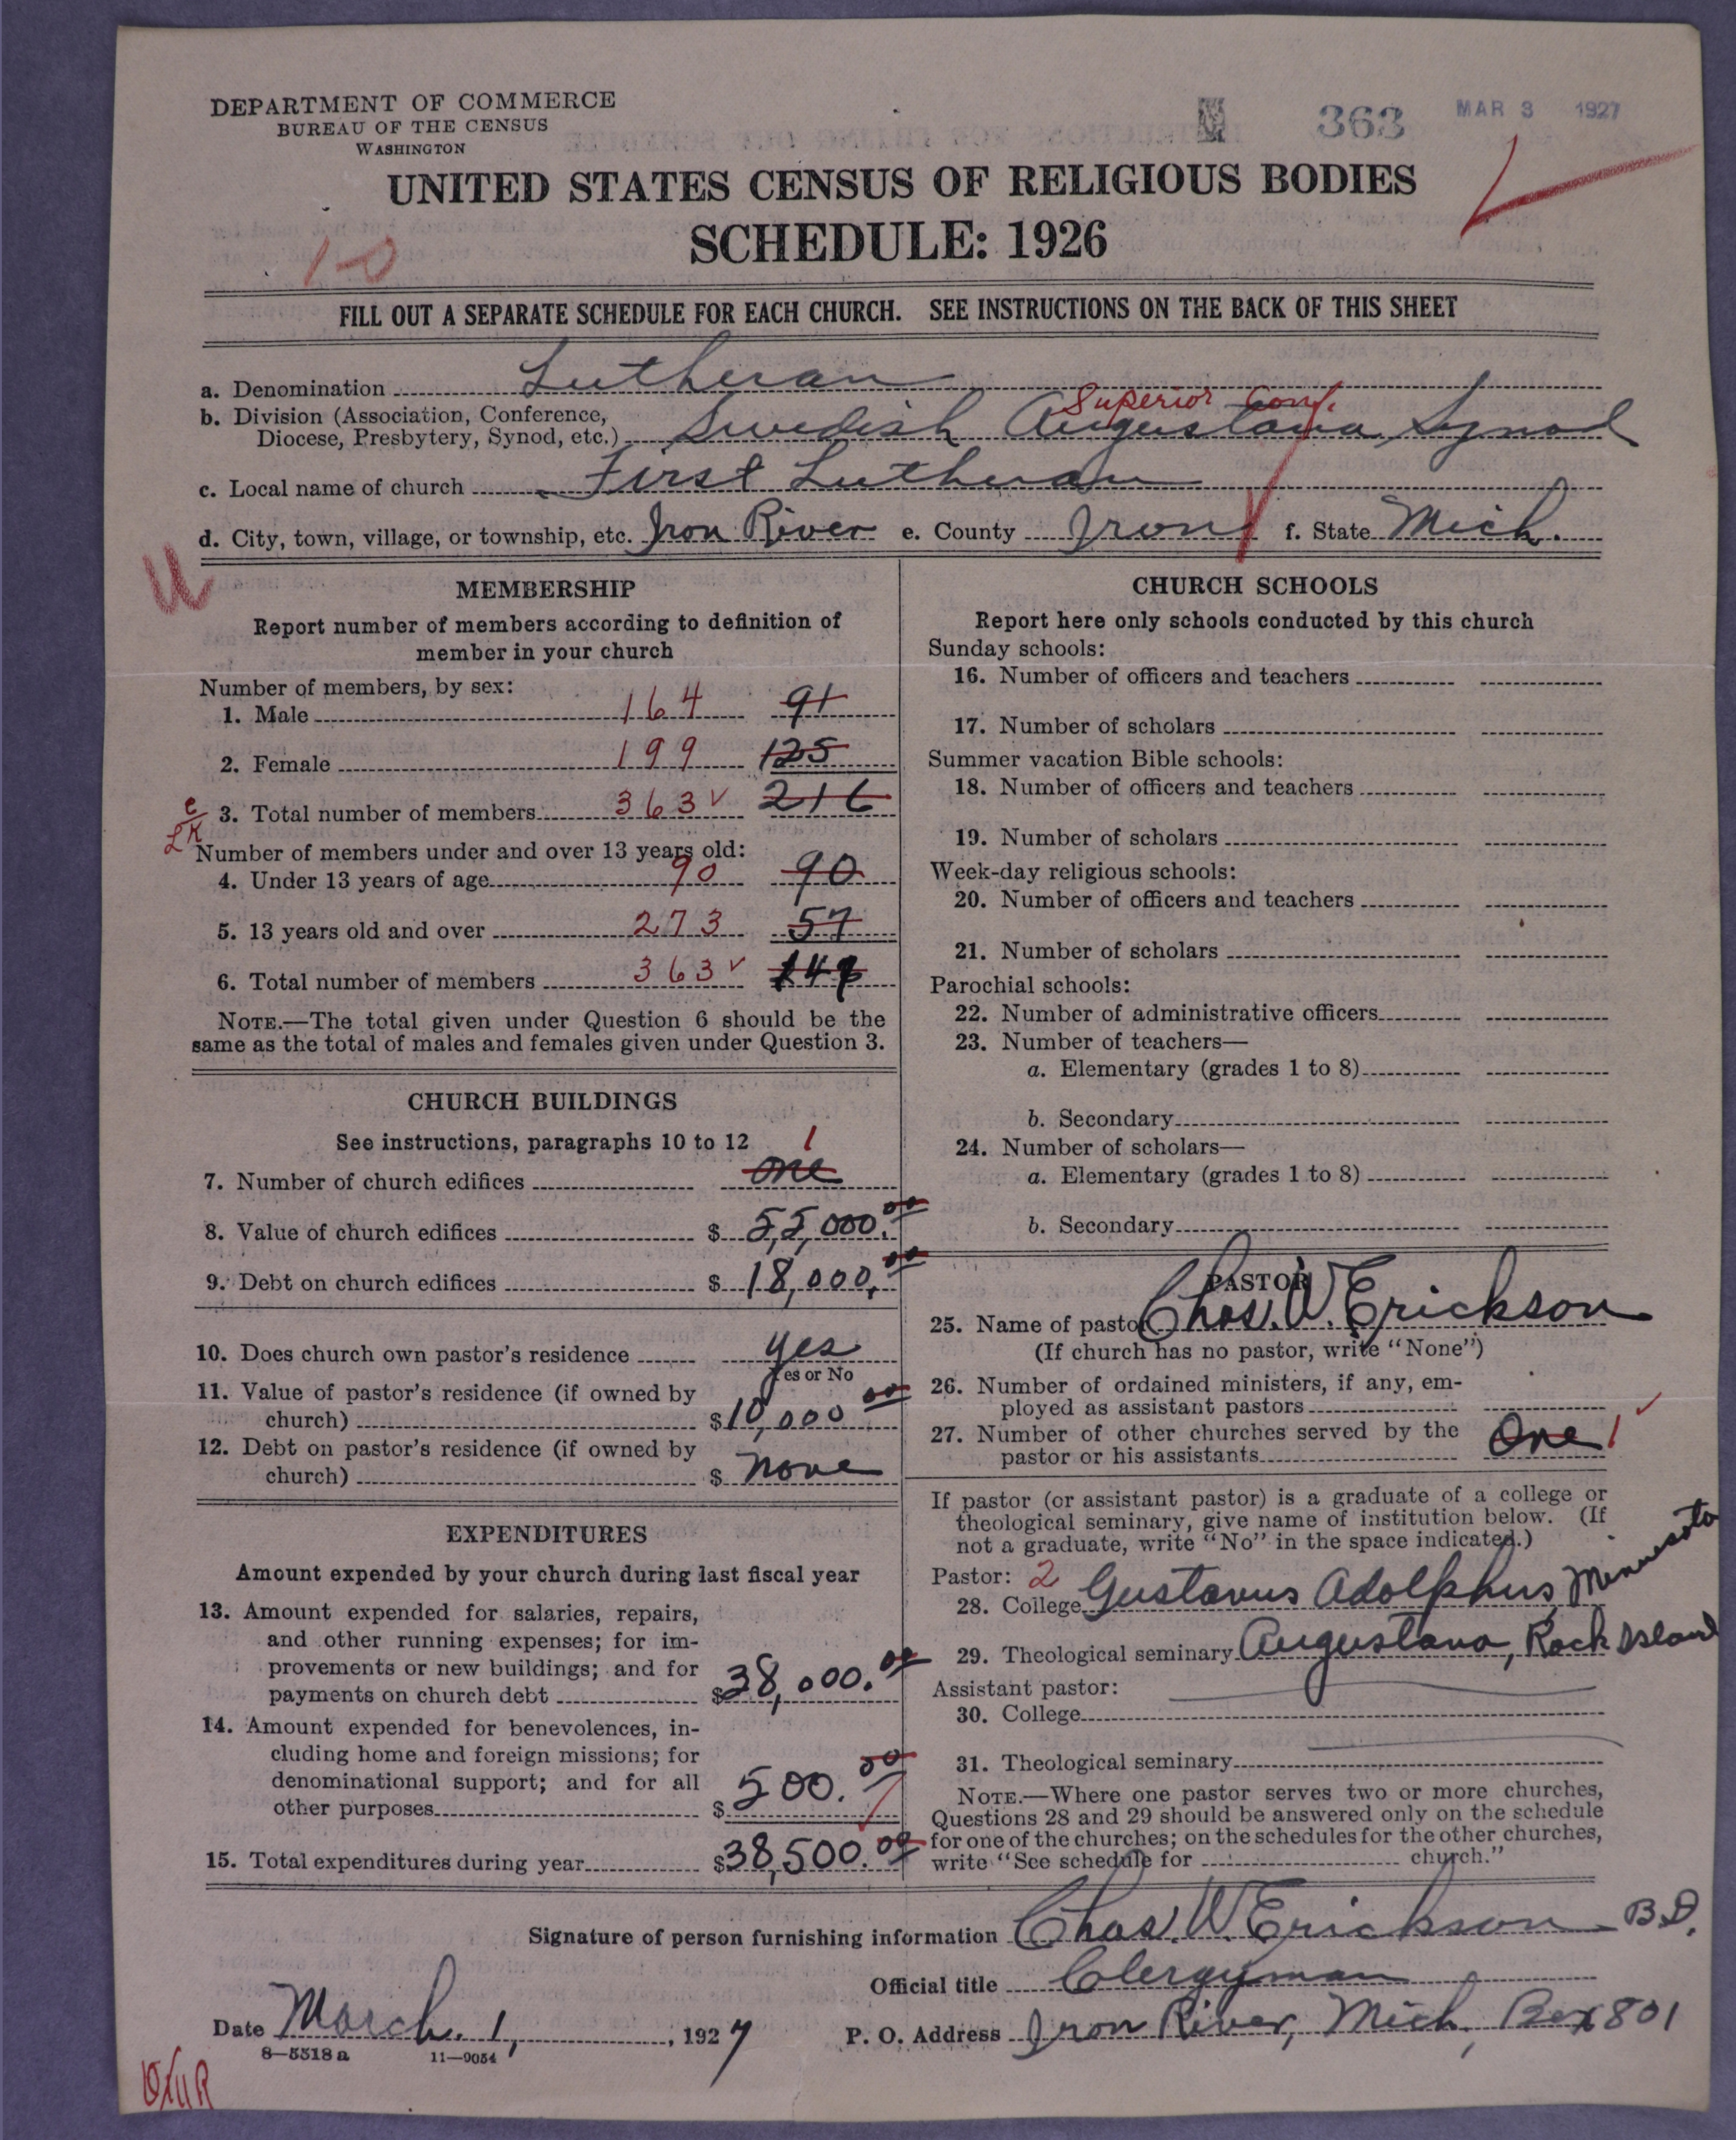 DEPARTMENT OF COMMERCE
BUREAU OF THE CENSUS
WASHINGTON
363 MAR 3 1927
UNITED STATES CENSUS OF RELIGIOUS BODIES
SCHEDULE: 1926
FILL OUT A SEPARATE SCHEDULE FOR EACH CHURCH. SEE INSTRUCTIONS ON THE BACK OF THIS SHEET
a. Denomination Lutheran
Superior Conf.
b. Division (Association, Conference,
Diocese, Presbytery, Synod, etc.) Swedish Augustana Synod
c. Local name of church First Lutheran
d. City, town, village, or township, etc. Iron River e. County Iron f. State Mich.
MEMBERSHIP
Report number of members according to definition of
member in your church
Number of members, by sex:
1. Male 164 91
2. Female 199 125
3. Total number of members 363 ✓ 216
Number of members under and over 13 years old:
4. Under 13 years of age 90 90
5. 13 years old and over 273 57
6. Total number of members 363 ✓ 147
NOTE.—The total given under Question 6 should be the
same as the total of males and females given under Question 3.
CHURCH BUILDINGS
See instructions, paragraphs 10 to 12
7. Number of church edifices one 1
8. Value of church edifices $ 55,000.00
9. Debt on church edifices $ 18,000.00
10. Does church own pastor's residence yes
Yes or No
11. Value of pastor's residence (if owned by
church) $10,000 00
12. Debt on pastor's residence (if owned by
church) $ none
EXPENDITURES
Amount expended by your church during last fiscal year
13. Amount expended for salaries, repairs,
and other running expenses; for im-
provements or new buildings; and for
payments on church debt $38,000.00
14. Amount expended for benevolences, in-
cluding home and foreign missions; for
denominational support; and for all
other purposes $ 500.00
15. Total expenditures during year $38,500.00
CHURCH SCHOOLS
Report here only schools conducted by this church
Sunday schools:
16. Number of officers and teachers
17. Number of scholars
Summer vacation Bible schools:
18. Number of officers and teachers
19. Number of scholars
Week-day religious schools:
20. Number of officers and teachers
21. Number of scholars
Parochial schools:
22. Number of administrative officers
23. Number of teachers—
a. Elementary (grades 1 to 8)
b. Secondary
24. Number of scholars—
a. Elementary (grades 1 to 8)
b. Secondary
PASTOR
25. Name of pastor Chas. W. Erickson
(If church has no pastor, write "None")
26. Number of ordained ministers, if any, em-
ployed as assistant pastors
27. Number of other churches served by the
pastor or his assistants One 1 ✓
If pastor (or assistant pastor) is a graduate of a college or
theological seminary, give name of institution below. (If
not a graduate, write "No" in the space indicated.)
Pastor: 2
28. College Gustavus Adolphus, Minnesota
29. Theological seminary Augustana, Rock Island
Assistant pastor:
30. College
31. Theological seminary
NOTE.—Where one pastor serves two or more churches,
Questions 28 and 29 should be answered only on the schedule
for one of the churches; on the schedules for the other churches,
write "See schedule for church."
Signature of person furnishing information Chas. W. Erickson B.D.
Official title Clergyman
Date March. 1, , 1927 P. O. Address Iron River, Mich, Box 801
8—5518 a 11—9054